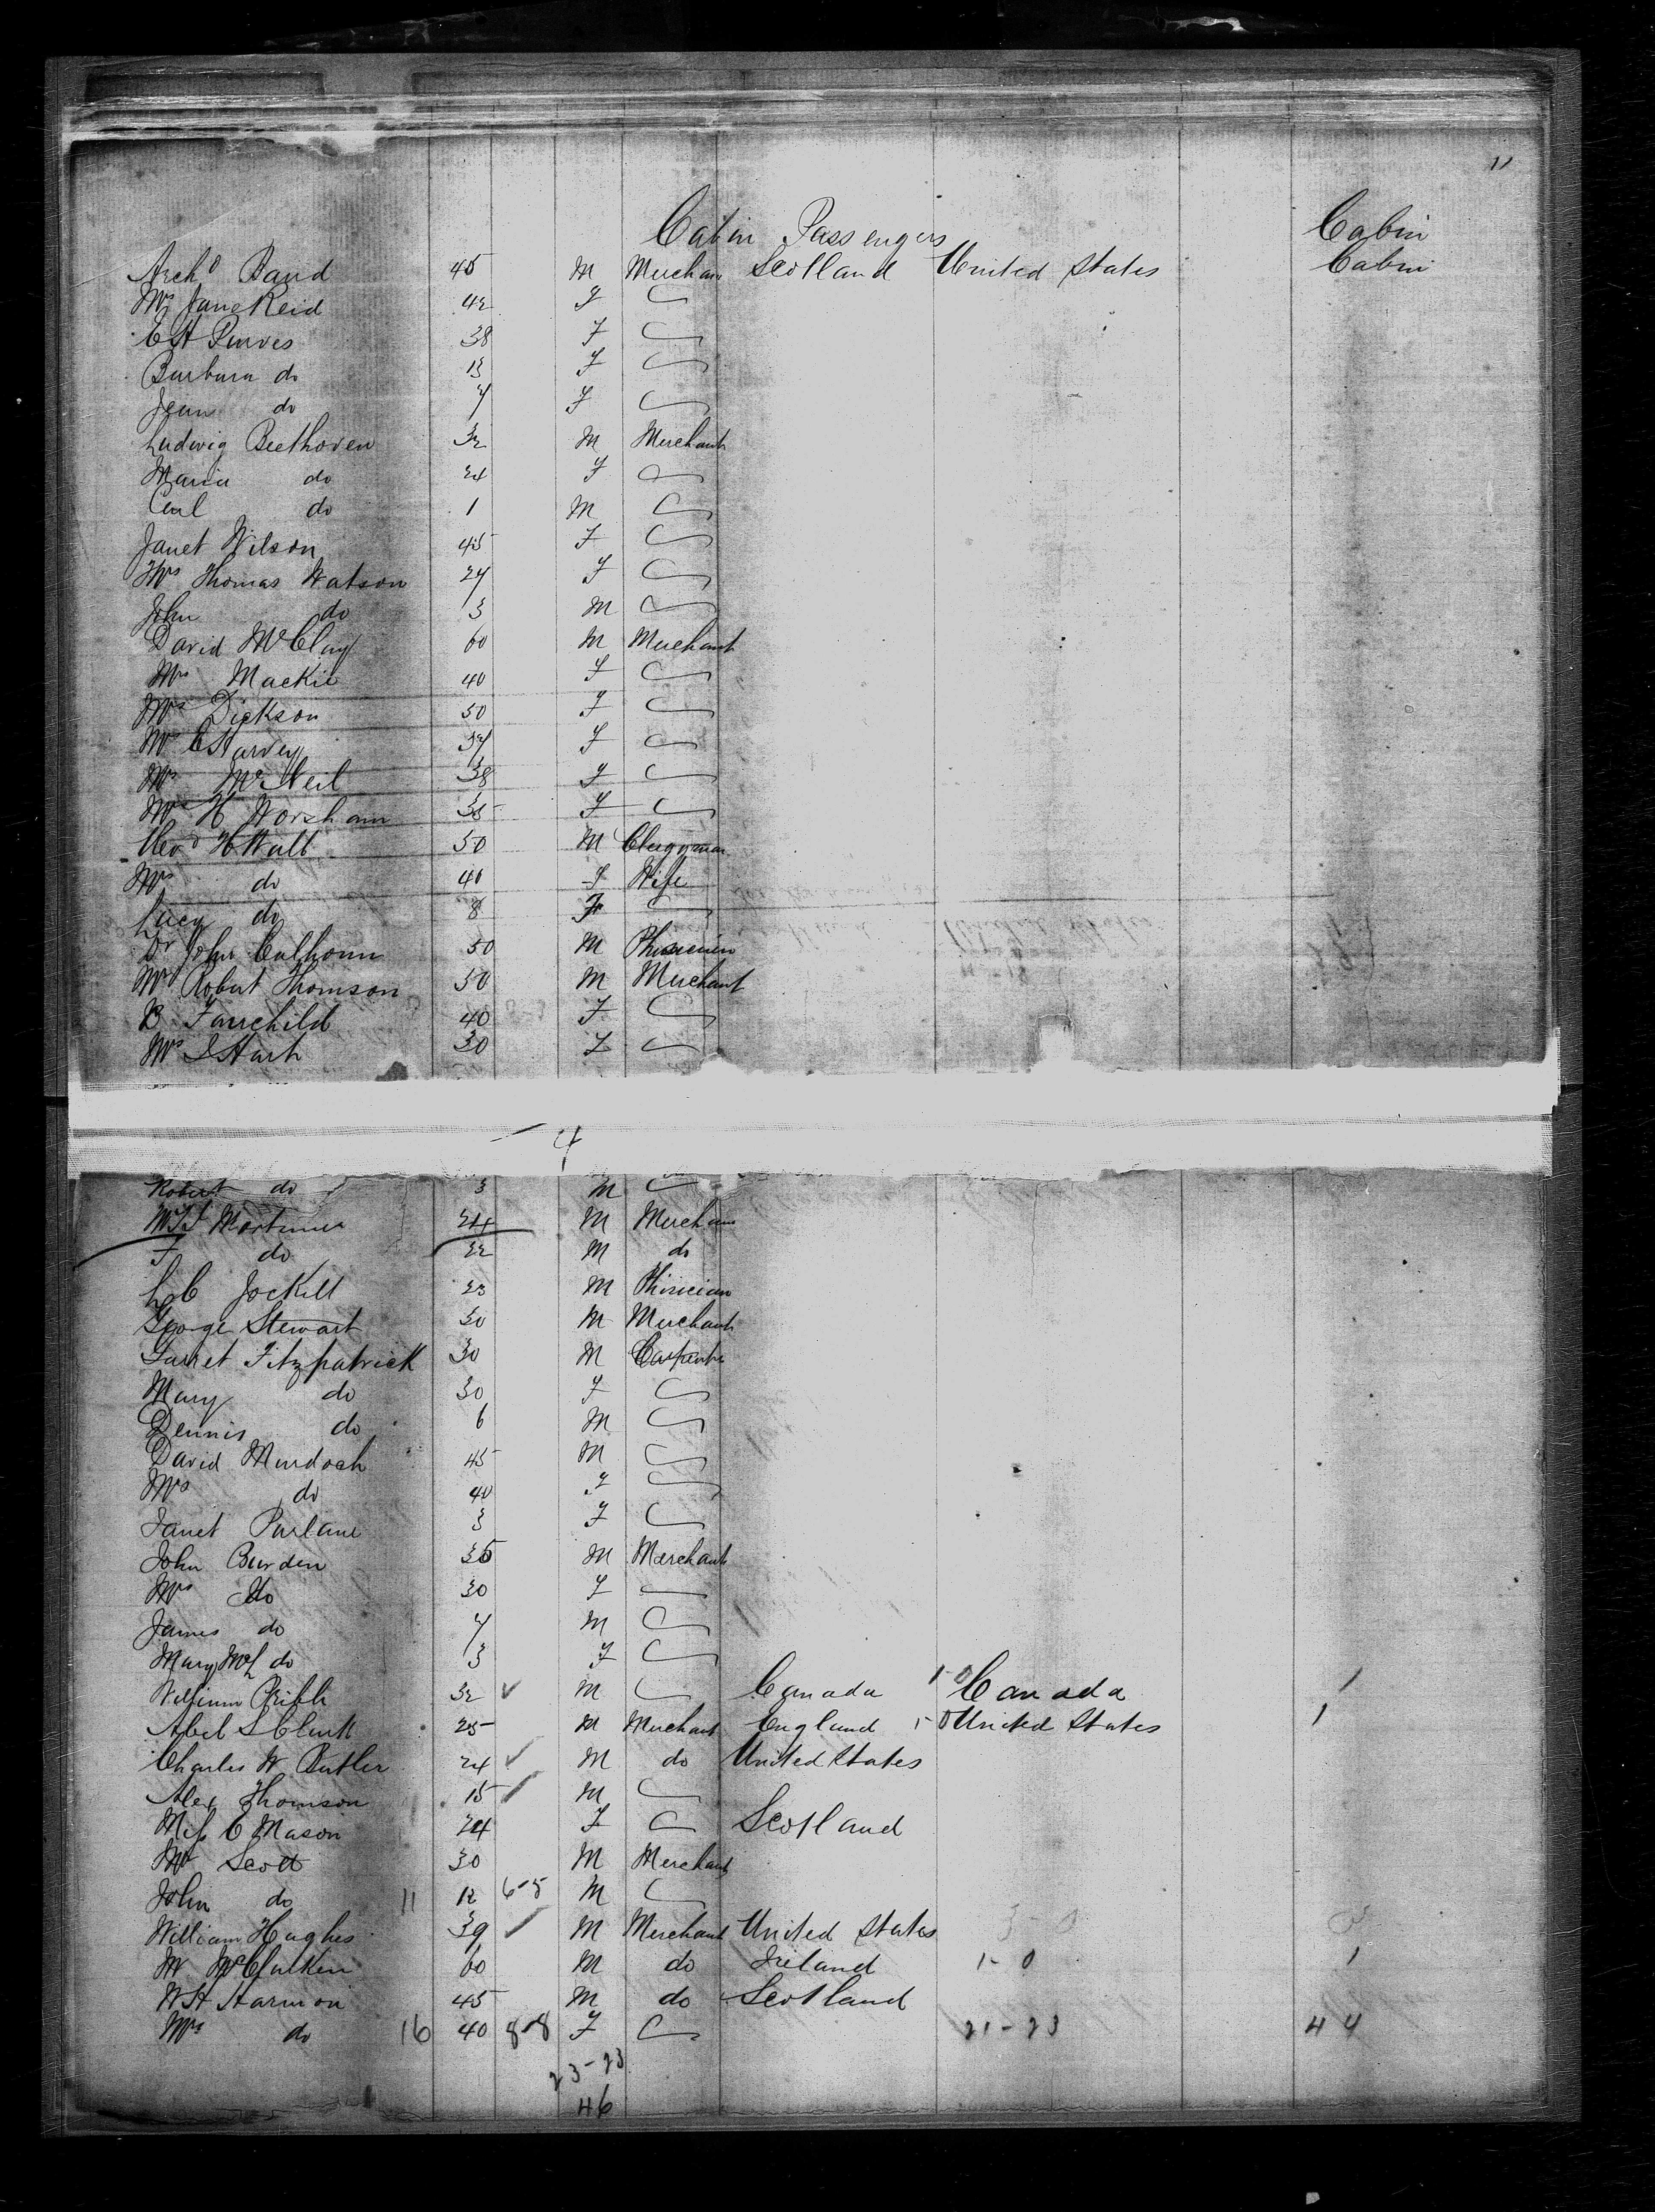 11
Cabin Passengers Cabin
Archd Baud 45 M Merchan Scotland United States Cabin
Mrs Jane Reid 42 F
C H Purves 38 F
Barbara do 13 F
Jean do 7 F
Ludwig Beethoven 32 M Merchant
Maria do 24 F
Carl do 1 M
Janet Wilson 45 F
Mrs Thomas Watson 27 F
John do 3 M
David McClay 60 M Merchant
Mrs Mackie 40 F
Mrs Dickson 50 F
Mrs C Harvey 37 F
Mrs McNeil 38 F
Mrs H Worsham 35 F
Revd H Wall 50 M Clergyman
Mrs do 40 F Wife
Lucy do 8 F
Dr John Calhoun 50 M Phisicien
Mr Robert Thomson 50 M Merchant
B Fairchild 40 F
Mrs S Hart 30 F
4
Robert do 3 M
Mortimer 24 M Merchan
F do 22 M do
L C Jockell 23 M Phisician
George Stewart 30 M Merchant
Garret Fitzpatrick 30 M Carpenter
Mary do 30 F
Dennis do 6 M
David Murdoch 45 M
Mrs do 40 F
Janet Parlane 3 F
John Burden 35 M Merchant
Mrs do 30 F
James do 7 M
Mary McL do 3 F
William 32 M Canada 1-0 Canada 1
Abel S Clark 25 M Merchant England 1-0 United States 1
Charles W Butler 24 M do United States
Alex Thomson 15 M
Miss C Mason 24 F Scotland
Mr Scott 30 M Merchant
John do 11 12 6-5 M
William Hughes 39 M Merchant United States 3-0 3
M McClurken 60 M do Ireland 1-0 1
W H Harmon 45 M do Scotland
Mrs do 16 40 8-8 F 21-23 44
23-23
46